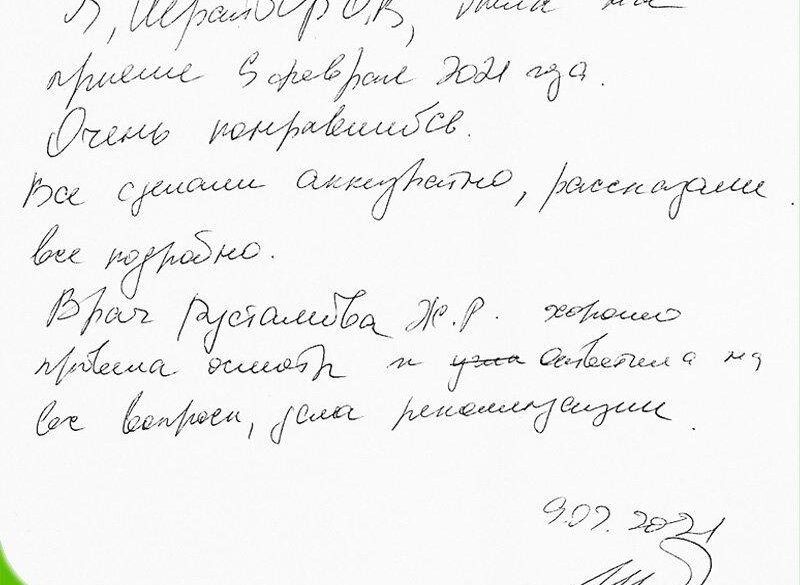 Я, была на
приеме 9 февраля 2021 года.
Очень понравилось.
Все сделали аккуратно, рассказали
все подробно.
Врач Рустамова Ж.Р. хорошо
провела осмотр и ответила на
все вопросы, дала рекомендации.
9.02.2021